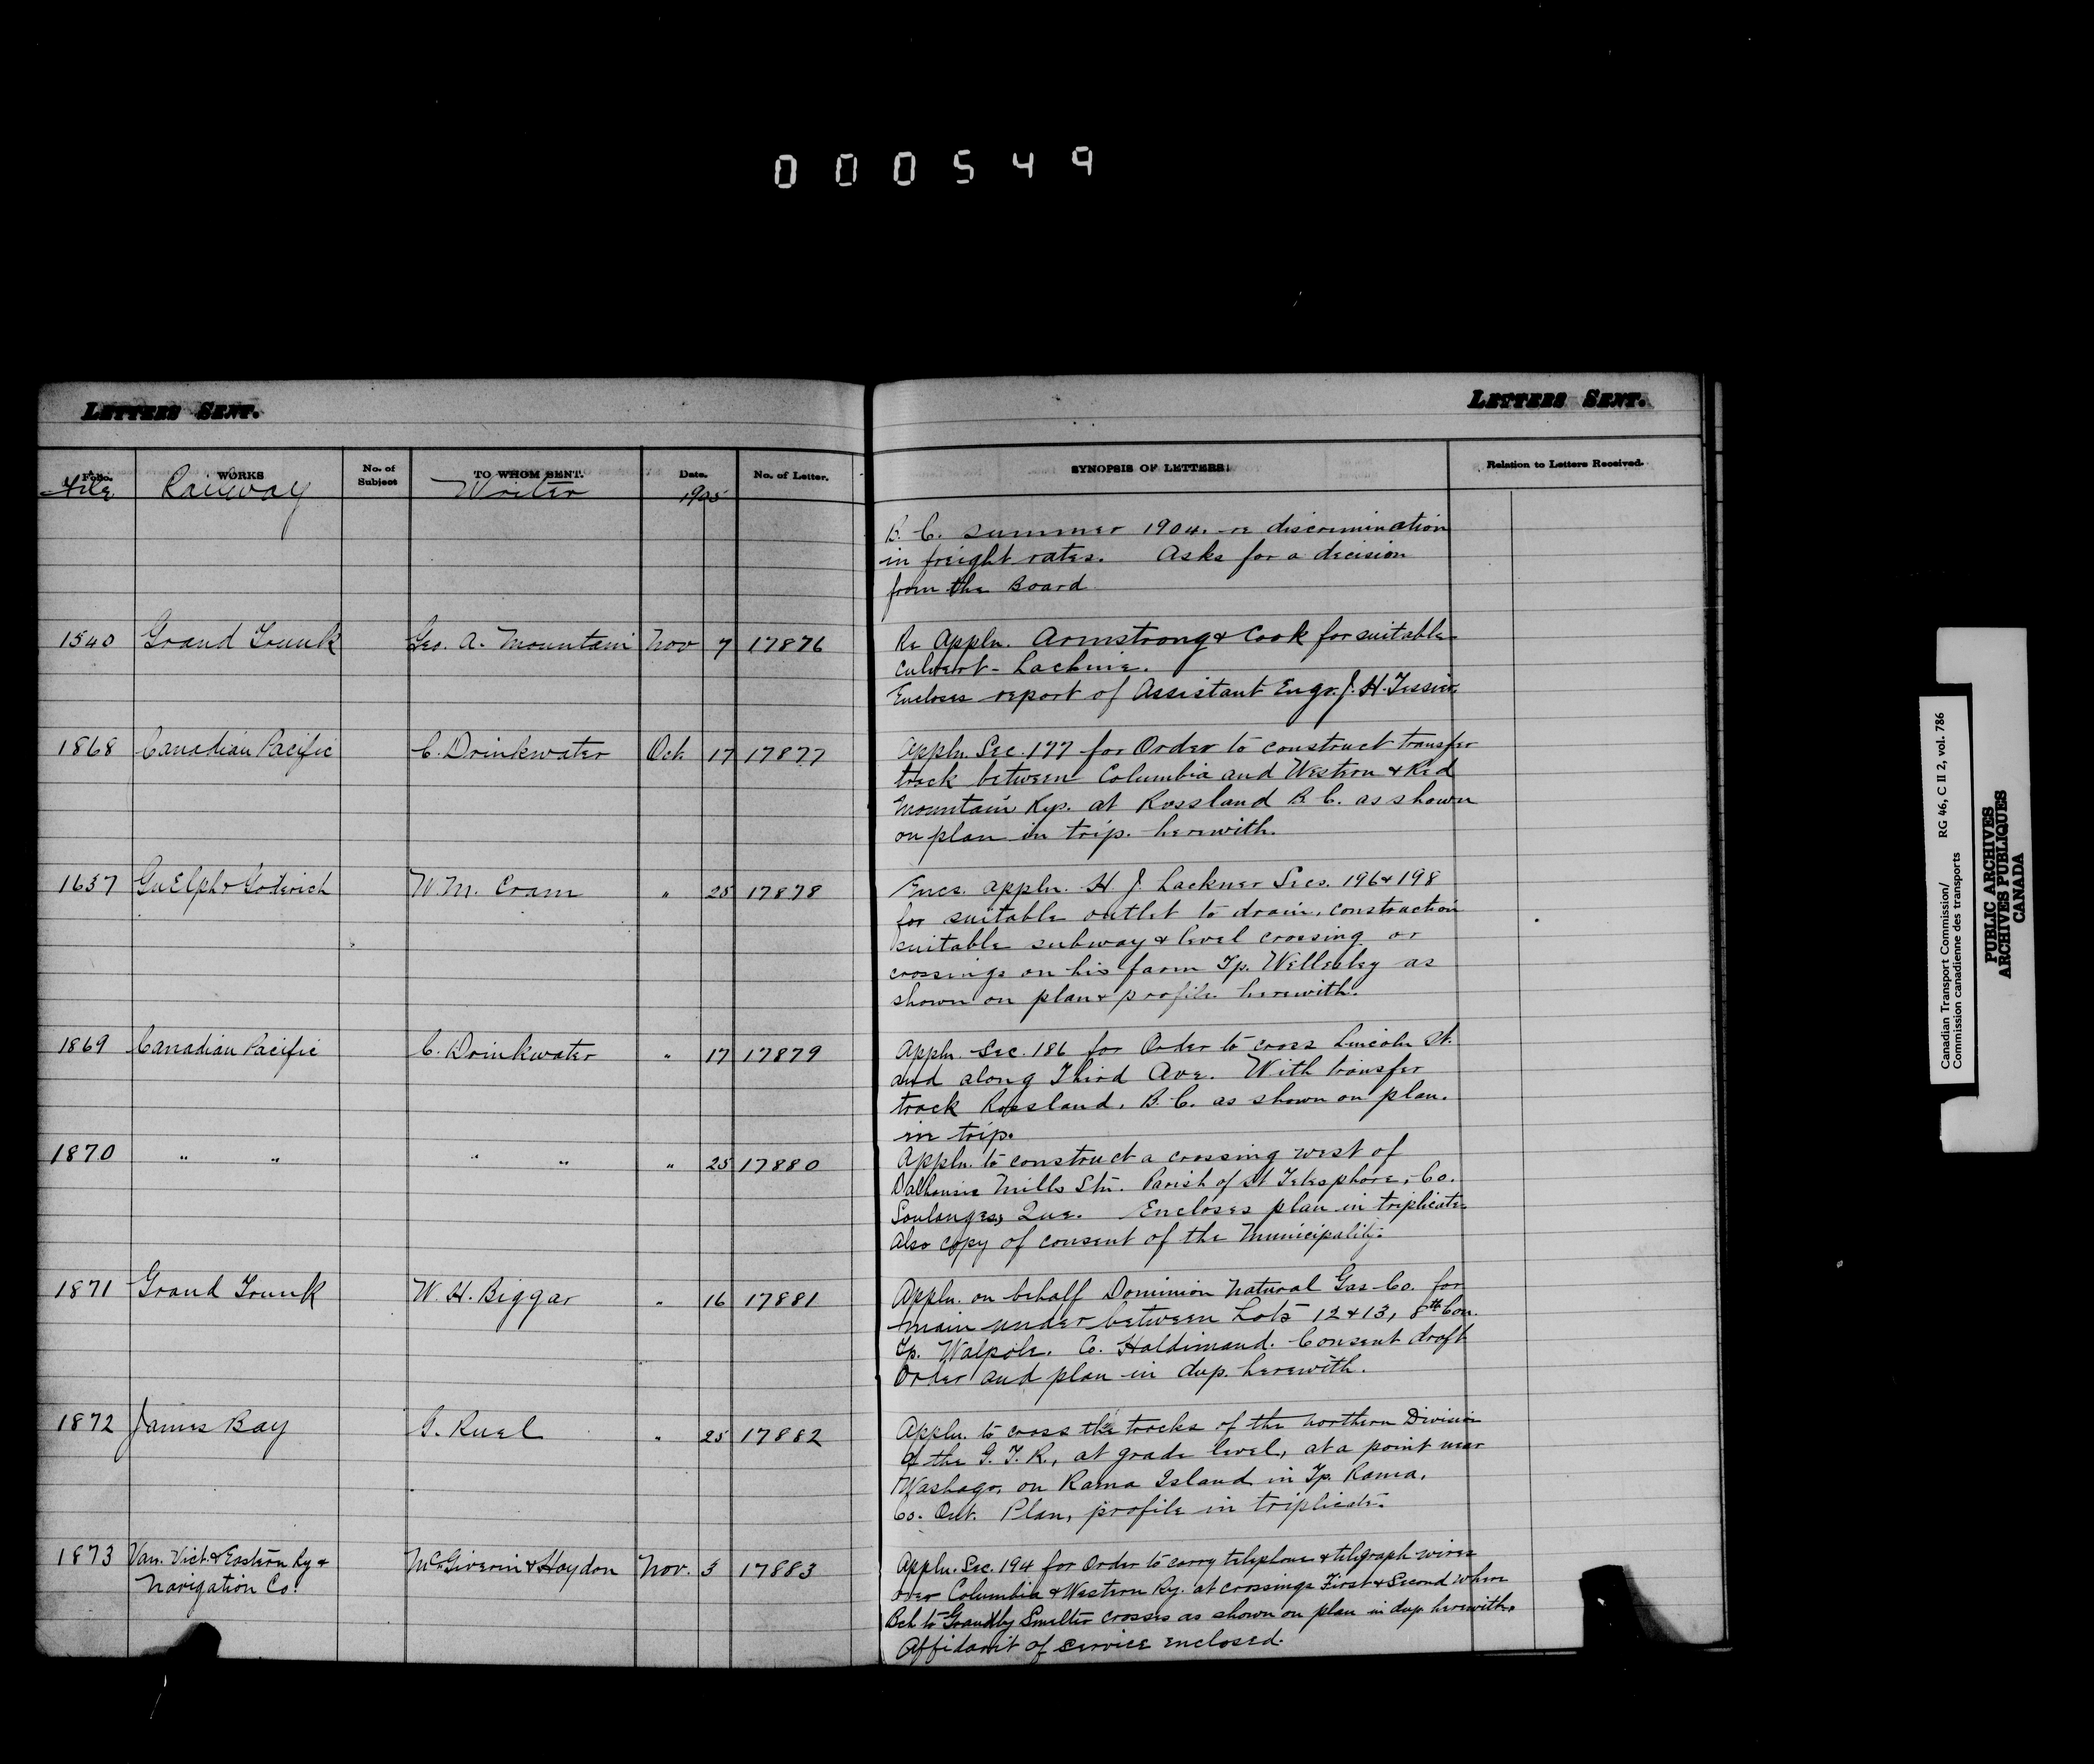 000549
LETTERS SENT.
LETTERS SENT.
Folio. WORKS No. of Subject TO WHOM SENT. Date. No. of Letter. SYNOPSIS OF LETTERS. Relation to Letters Received.
File Railway Writer 1905
B. C. summer 1904. re discrimination
in freight rates. Asks for a decision
from the Board
1540 Grand Trunk Geo. A. Mountain Nov 7 17876 Re Appln. Armstrong & Cook for suitable
culvert - Lachine.
Encloses report of Assistant Engr. J. H. Tessier.
1868 Canadian Pacific C. Drinkwater Oct. 17 17877 Appln. Sec. 177 for Order to construct transfer
track between Columbia and Western & Red
Mountain Rys. at Rossland B. C. as shown
on plan in trip. herewith.
1637 Guelph & Goderich W. M. Cram " 25 17878 Encs. appln. H. J. Lackner Secs. 196 & 198
for suitable outlet to drain, construction
suitable subway & level crossing or
crossings on his farm Tp. Wellesley as
shown on plan & profile herewith.
1869 Canadian Pacific C. Drinkwater " 17 17879 Appln. Sec. 186 for Order to cross Lincoln St.
and along Third Ave. With transfer
track Rossland, B. C. as shown on plan.
in trip.
1870 " " " " " 25 17880 Appln. to construct a crossing west of
Dalhousie Mills Stn. Parish of St Telesphore, Co.
Soulanges, Que. Encloses plan in triplicate
Also copy of consent of the Municipality.
1871 Grand Trunk W. H. Biggar " 16 17881 Appln. on behalf Dominion Natural Gas Co. for
main under between Lots 12 & 13, 8th Con.
Tp. Walpole. Co. Haldimand. Consent draft
Order and plan in dup. herewith.
1872 James Bay G. Ruel " 25 17882 Appln. to cross the tracks of the Northern Division
of the G. T. R., at grade level, at a point near
Washago, on Rama Island in Tp. Rama,
Co. Ont. Plan, profile in triplicate.
1873 Van. Vict. & Eastern Ry & McGiverin & Haydon Nov. 3 17883 Appln. Sec. 194 for Order to carry telephone & telegraph wires
Navigation Co. over Columbia & Western Ry. at crossings First & Second where
Bch to Grandby Smelter crosses as shown on plan in dup. herewith.
Affidavit of service enclosed.
Canadian Transport Commission/ RG 46, C II 2, vol. 786
Commission canadienne des transports
PUBLIC ARCHIVES
ARCHIVES PUBLIQUES
CANADA